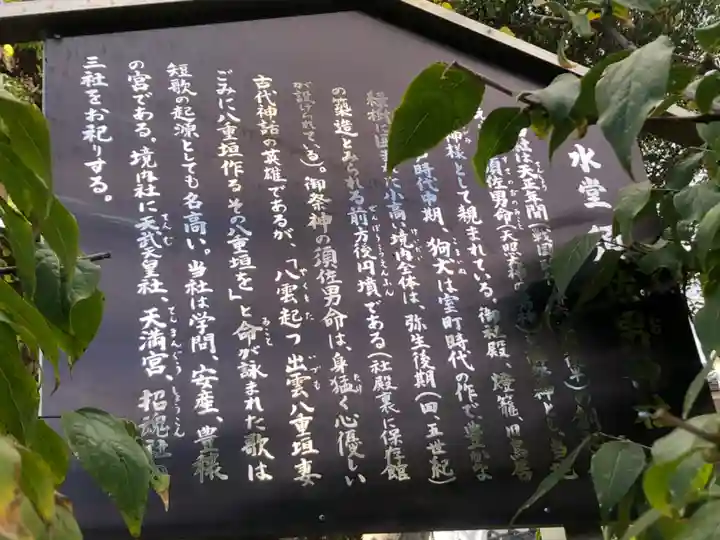 水堂
社は天正年間(戦国
須佐男命(天照大神の
神様として親まれている。御社殿、燈籠、旧鳥居
時代中期、狗犬は室町時代の作で、豊かな
緑樹に囲まれた小高い境内全体は、弥生後期(四、五世紀)
の築造とみられる前方後円墳である(社殿裏に保存館
が設けられている)。御祭神の須佐男命は、身猛く心優しい
古代神話の英雄であるが、「八雲起つ出雲八重垣妻
ごみに八重垣作るその八重垣を」と命が詠まれた歌は
短歌の起源としても名高い。当社は学問、安産、豊穣
の宮である。境内社に天武天皇社、天満宮、招魂社の
三社をお祀りする。